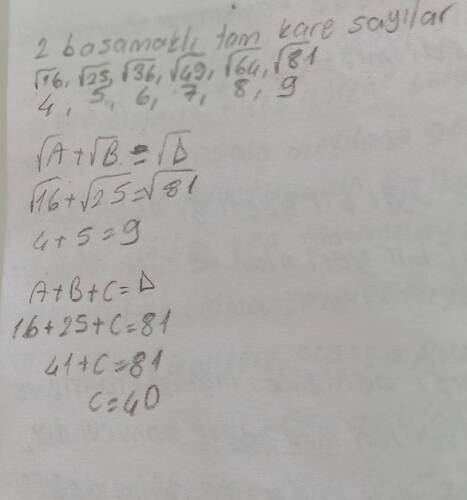 2 basamaklı tam kare sayılar
√16, √25, √36, √49, √64, √81
4, 5, 6, 7, 8, 9
√A+√B=√D
√16+√25=√81
4+5=9
A+B+C=D
16+25+C=81
41+C=81
C=40